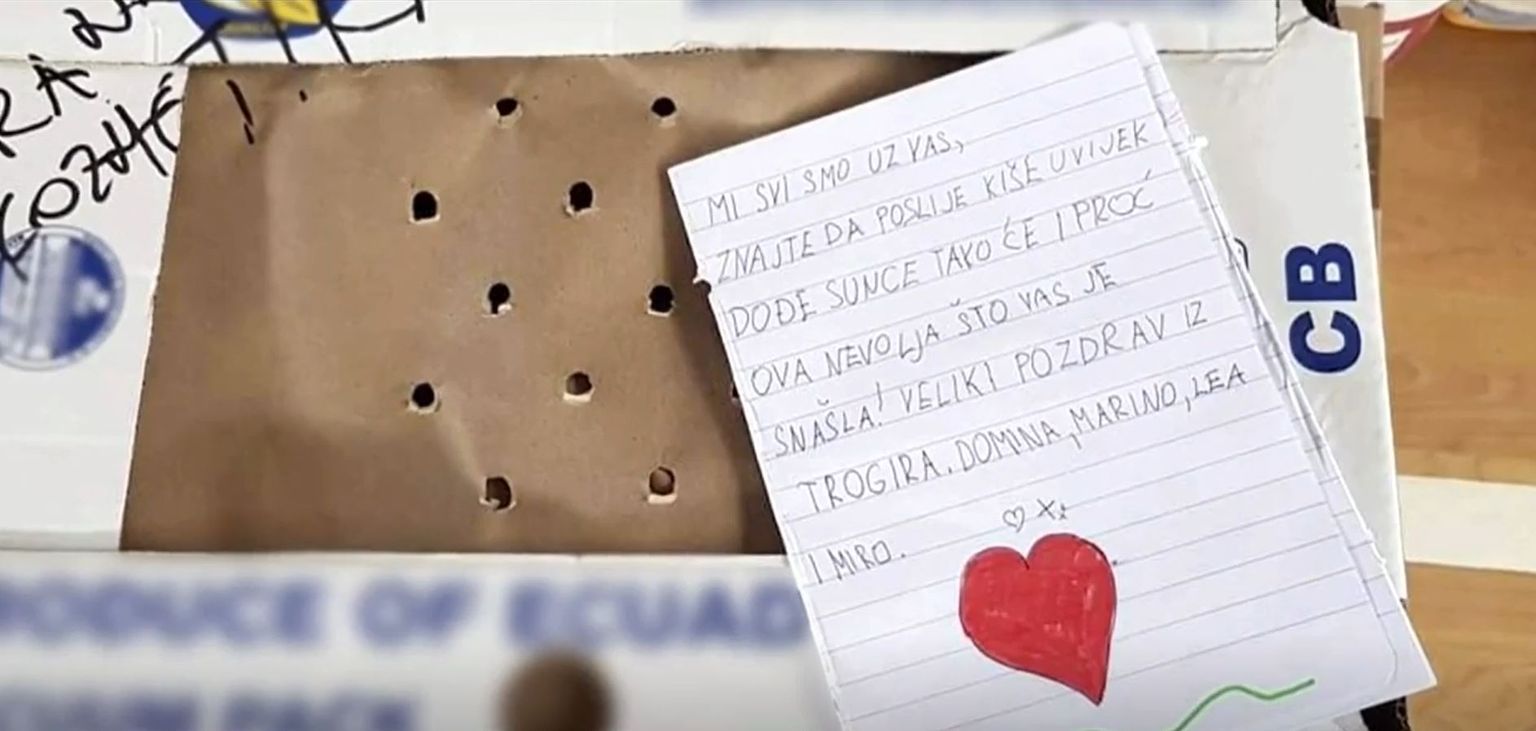 RA
!
CB
MI SVI SMO UZ VAS,
ZNAJTE DA POSLIJE KIŠE UVIJEK
DOĐE SUNCE TAKO ĆE I PROĆ
OVA NEVOLJA ŠTO VAS JE
SNAŠLA! VELIKI POZDRAV IZ
TROGIRA. DOMINA, MARINO, LEA
I MIRO.
PRODUCE OF ECUAD